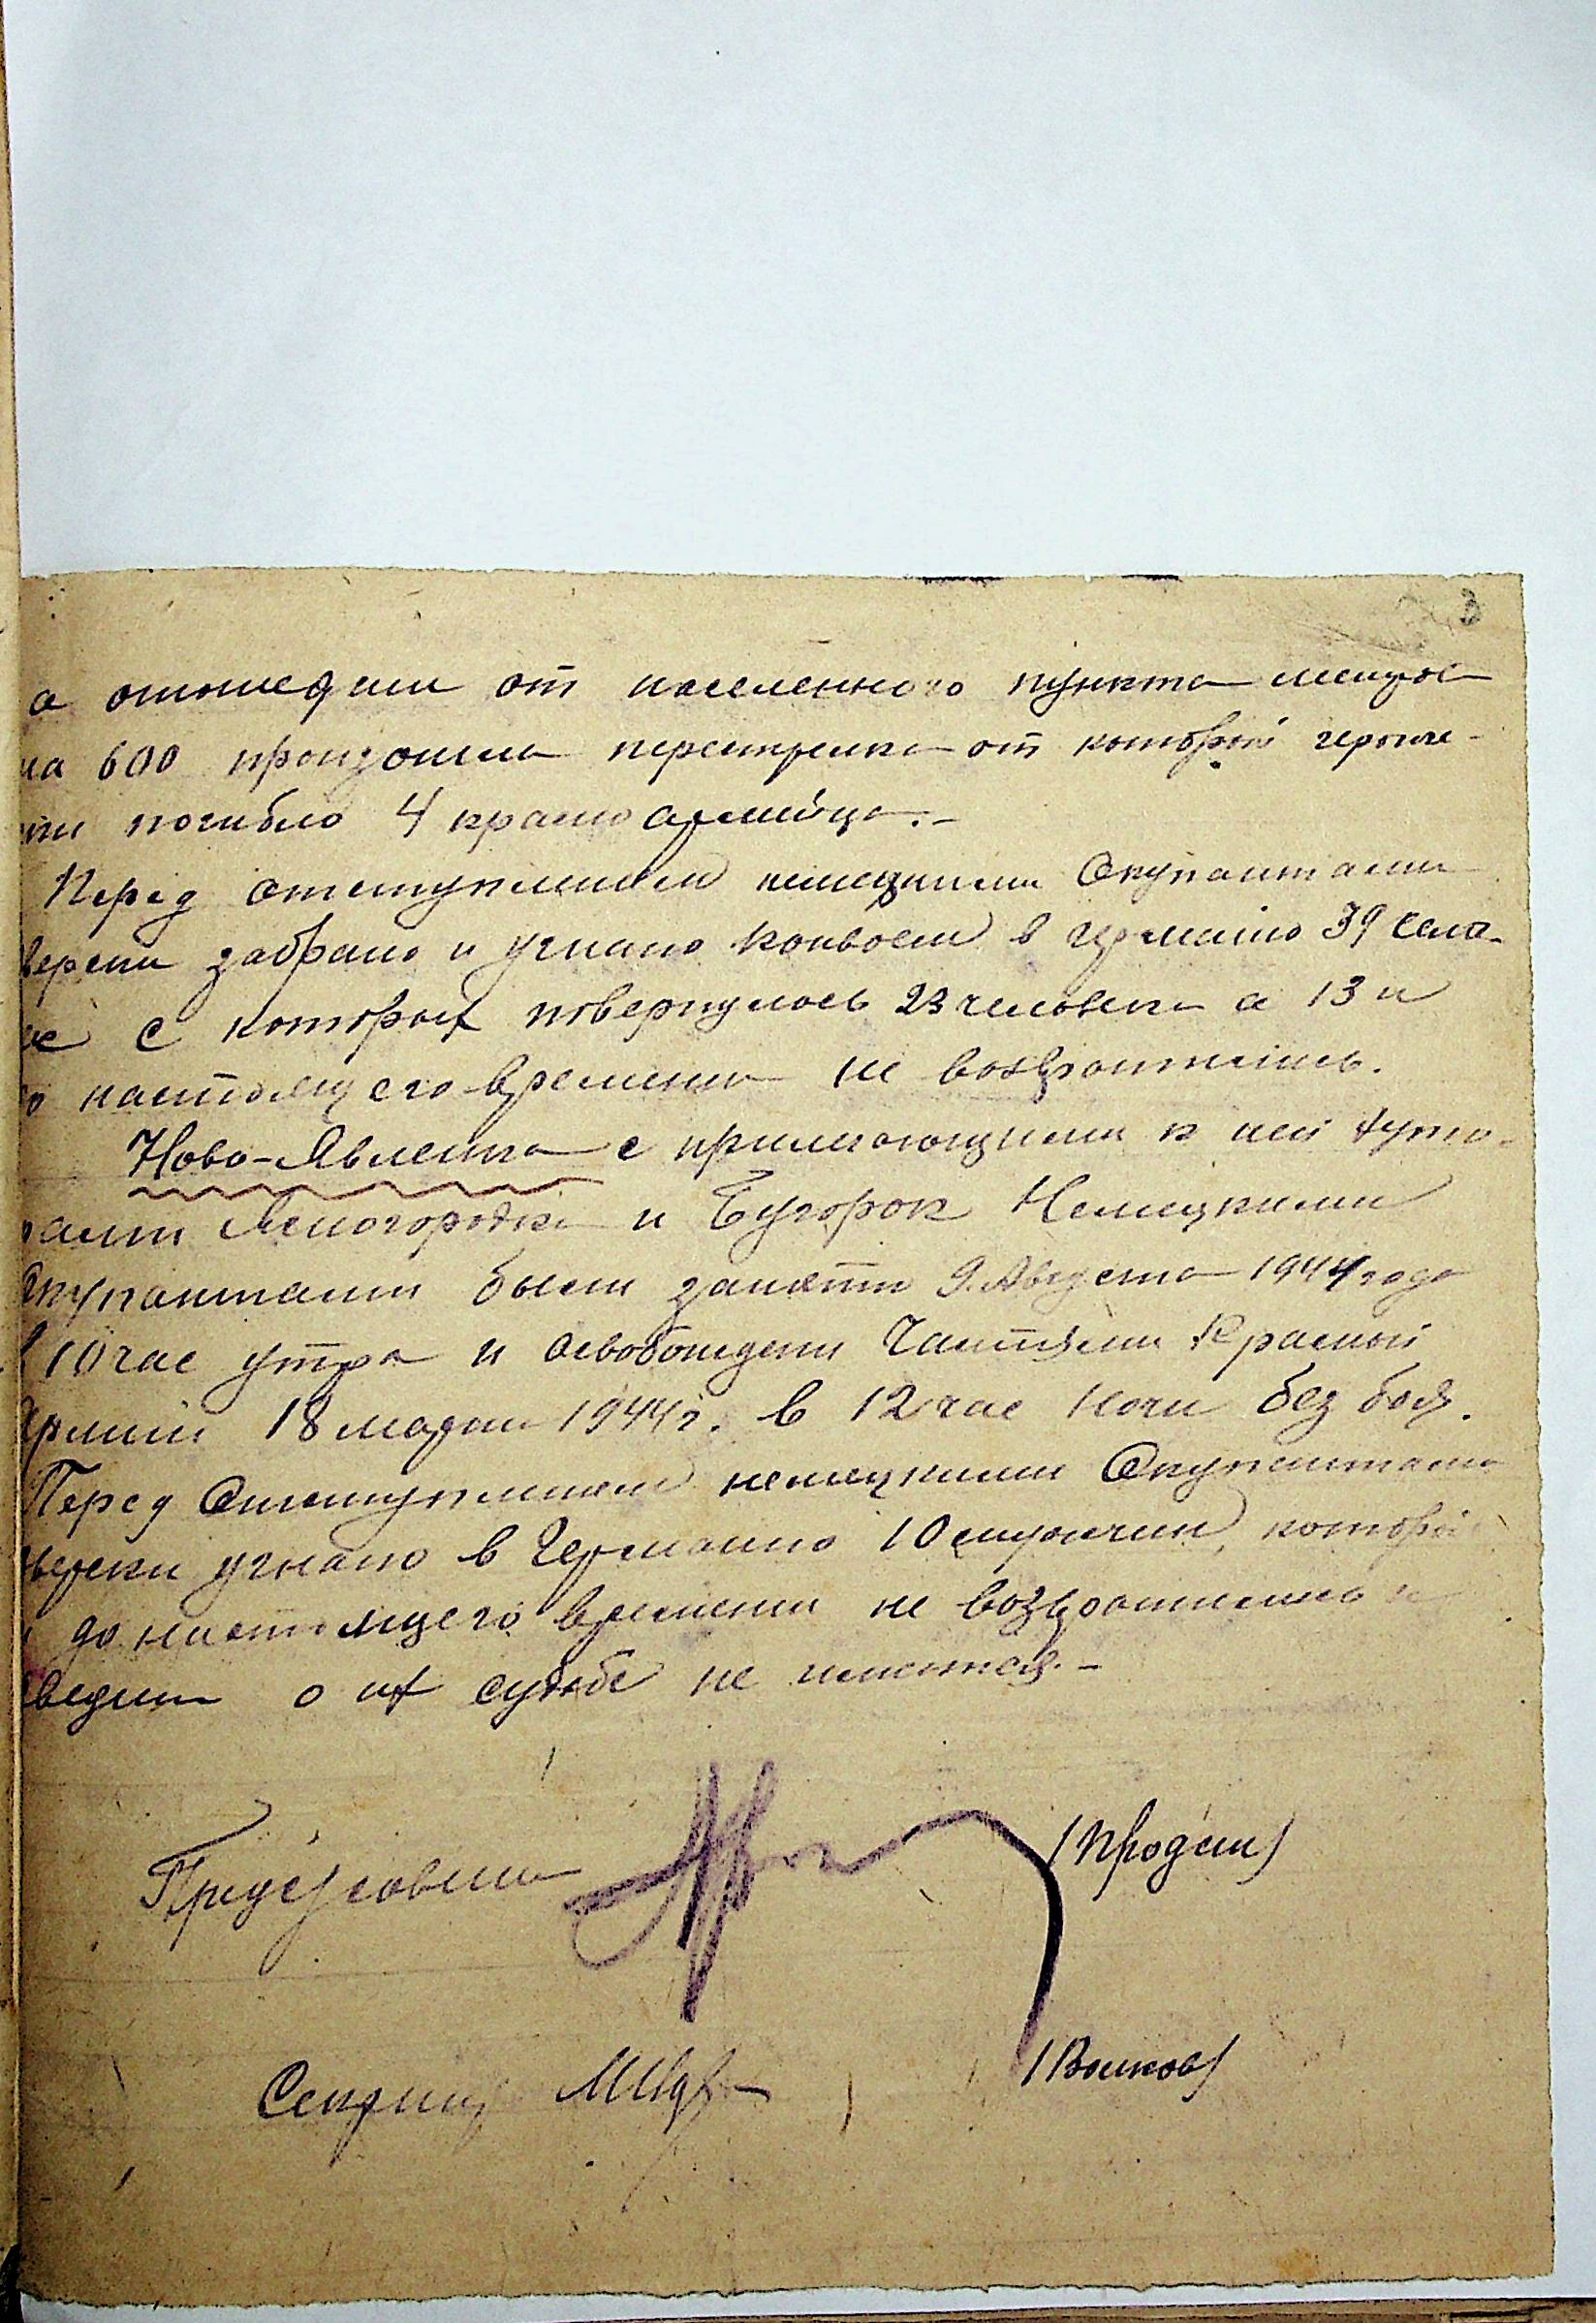 3
а отошедши от населенного пункта метров
на 600 произошла перестрелка от которой героиче-
ски погибло 4 красноармейца.-
Перед отступлением немецкими Окупантами
зверски забрано и угнано конвоем в германию 39
с которых повернулось 23 человека а 13 и
настоящего времени не возвратились.
Ново-Явленка с прилегающими к ней Хуто-
рами Ясногородка и Бугорок Немецкими
Окупантами были заняты 9. Августа 1944 года
в 10 час утра и освобождены Частями Красной
Армии 18 марта 1944 г. в 12 час ночи без боя.
Перед Отступлением немецкими Окупантами
зверски угнано в Германию 10 мужчин, которые
и до настоящего времени не возвратились и
сведени о их судьбе не имеется.-
Пред с/совета (Продан)
Секретарь (Волков)